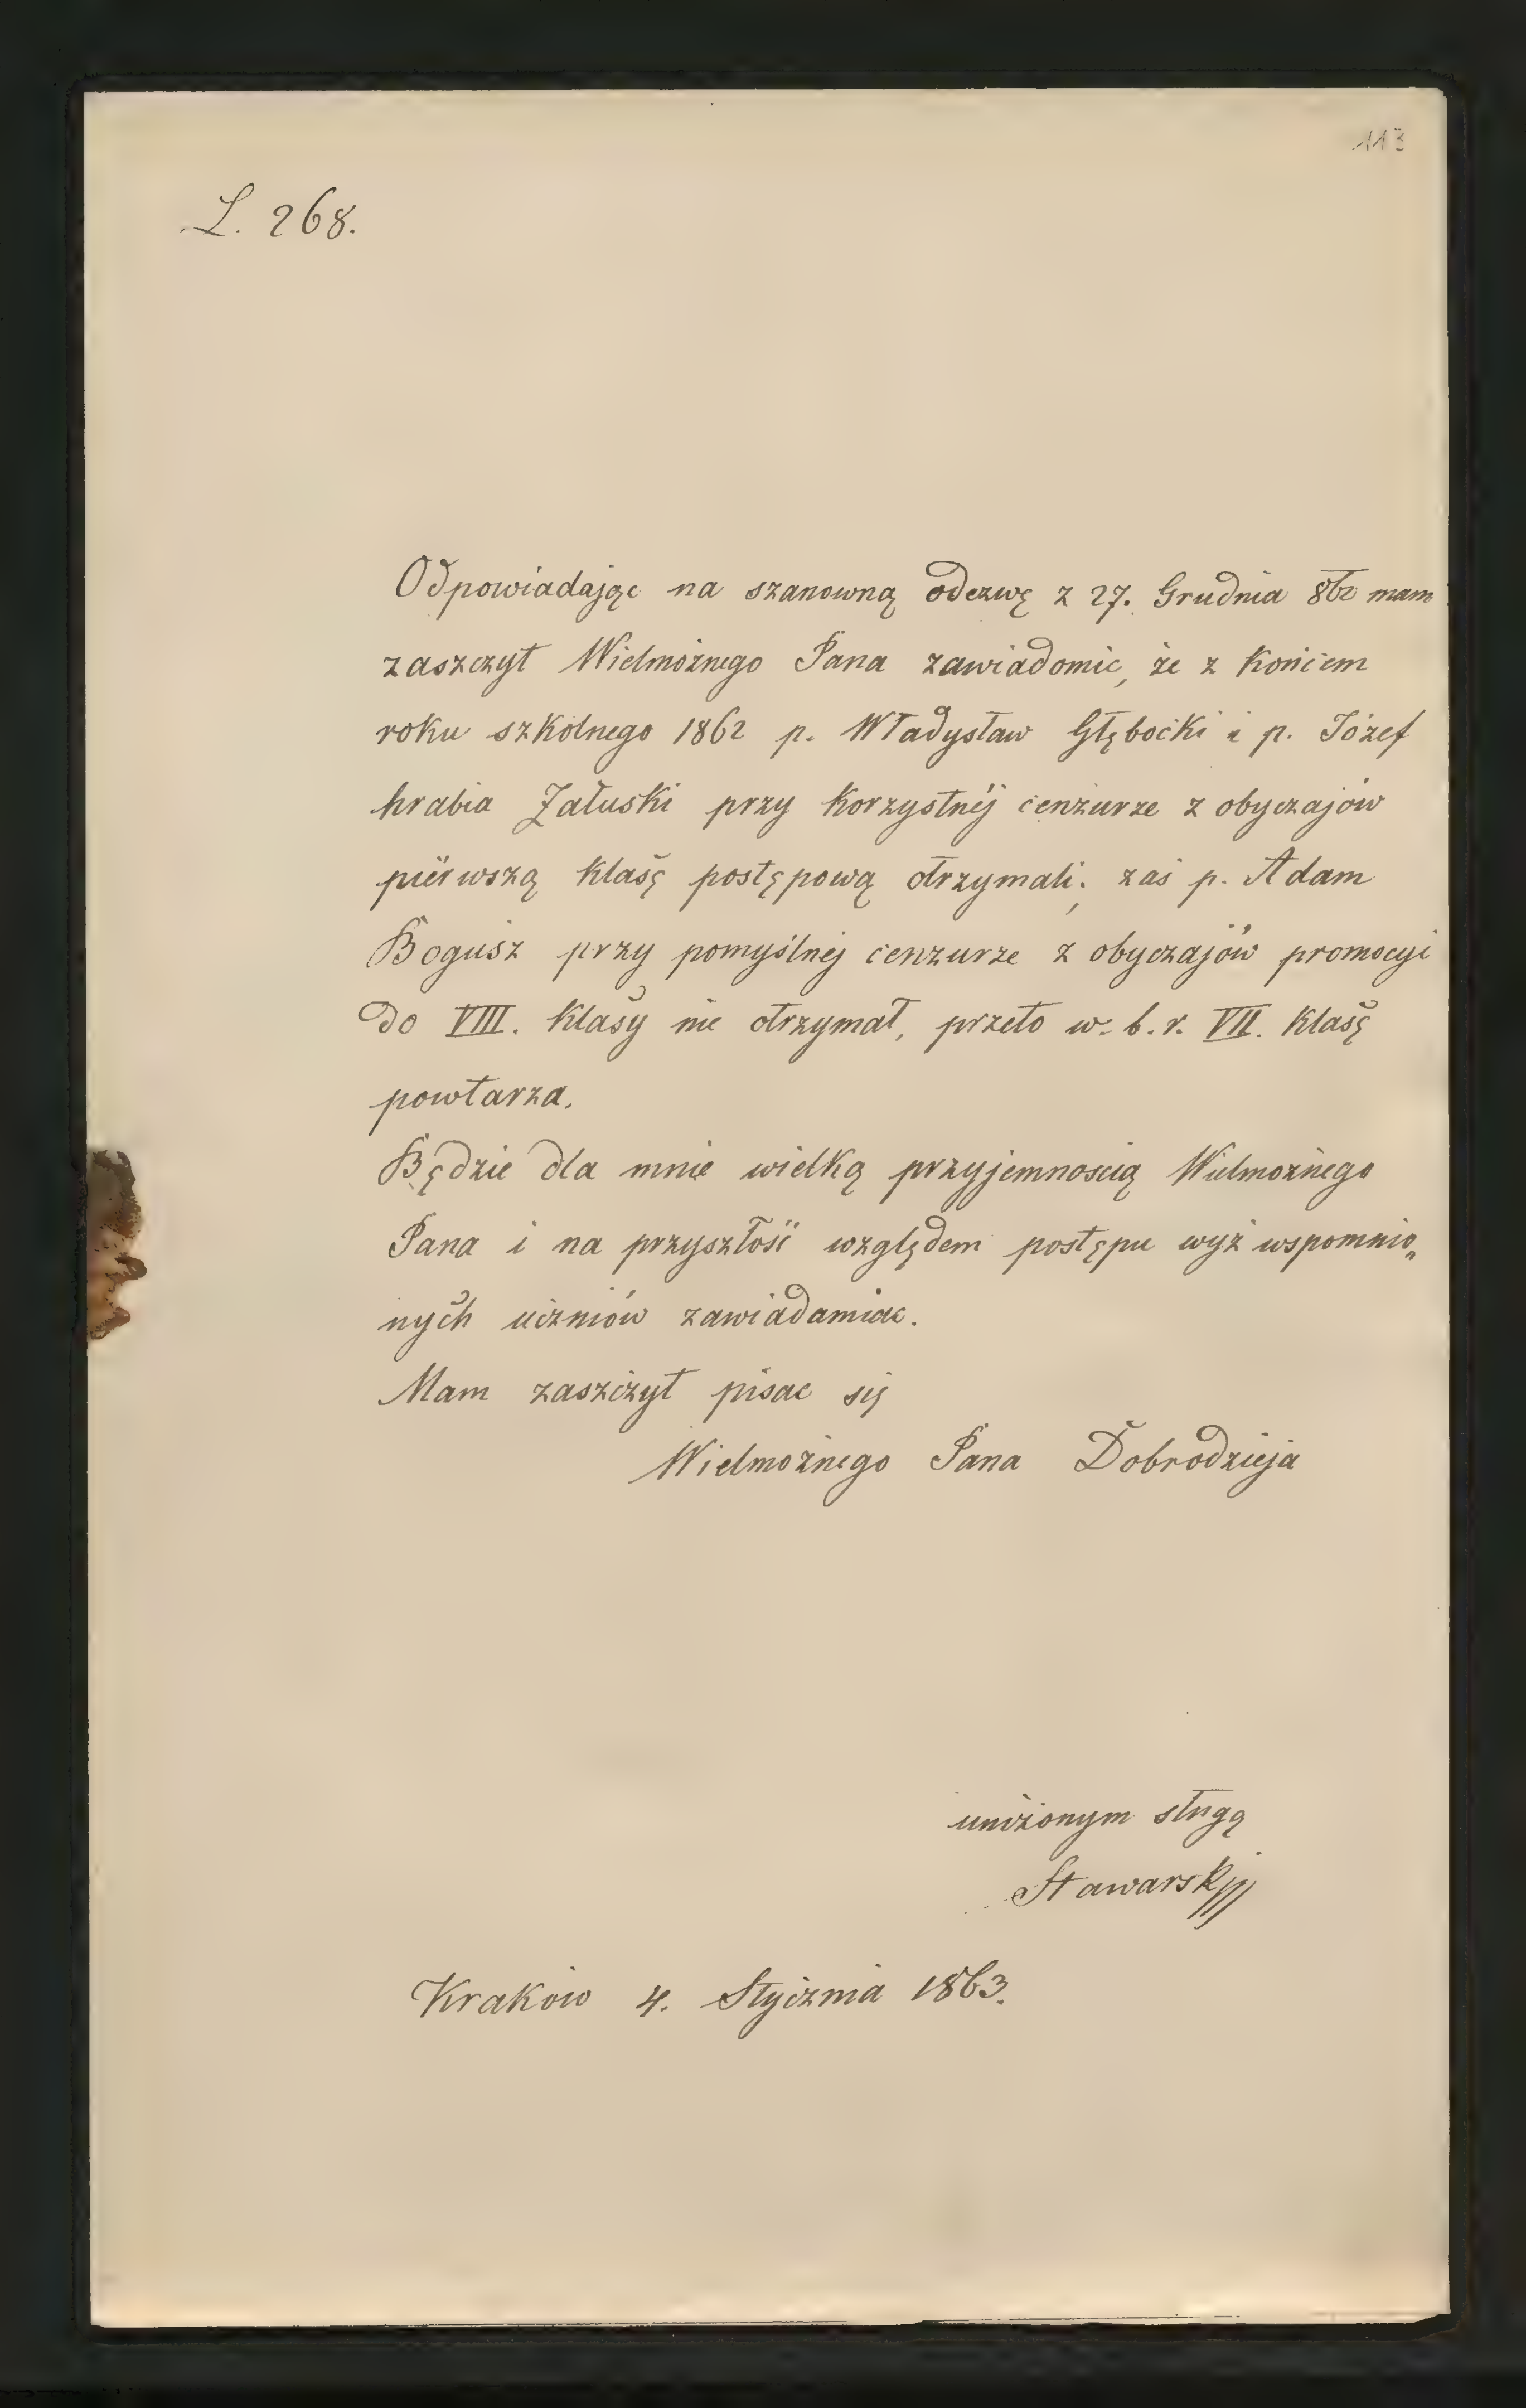 113
L. 268.
Odpowiadając na szanowną odezwę z 27. Grudnia 862 mam
zaszczyt Wielmożnego Pana zawiadomić, że z końcem
roku szkolnego 1862 p. Władysław Głębocki i p. Józef
hrabia Załuski przy korzystnéj cenzurze z obyczajów
piérwszą klasę postępową otrzymali; zaś p. Adam
Bogusz przy pomyślnéj cenzurze z obyczajów promocyi
do VIII. klasy nie otrzymał, przeto w. b. r. VII. klasę
powtarza.
Będzie dla mnie wielką przyjemnością Wielmożnego
Pana i na przyszłość względem postępu wyż wspomnio„
nych uczniów zawiadamiać.
Mam zaszczyt pisać się
Wielmożnego Pana Dobrodzieja
uniżonym sługą
Stawarski
Kraków 4. Stycznia 1863.